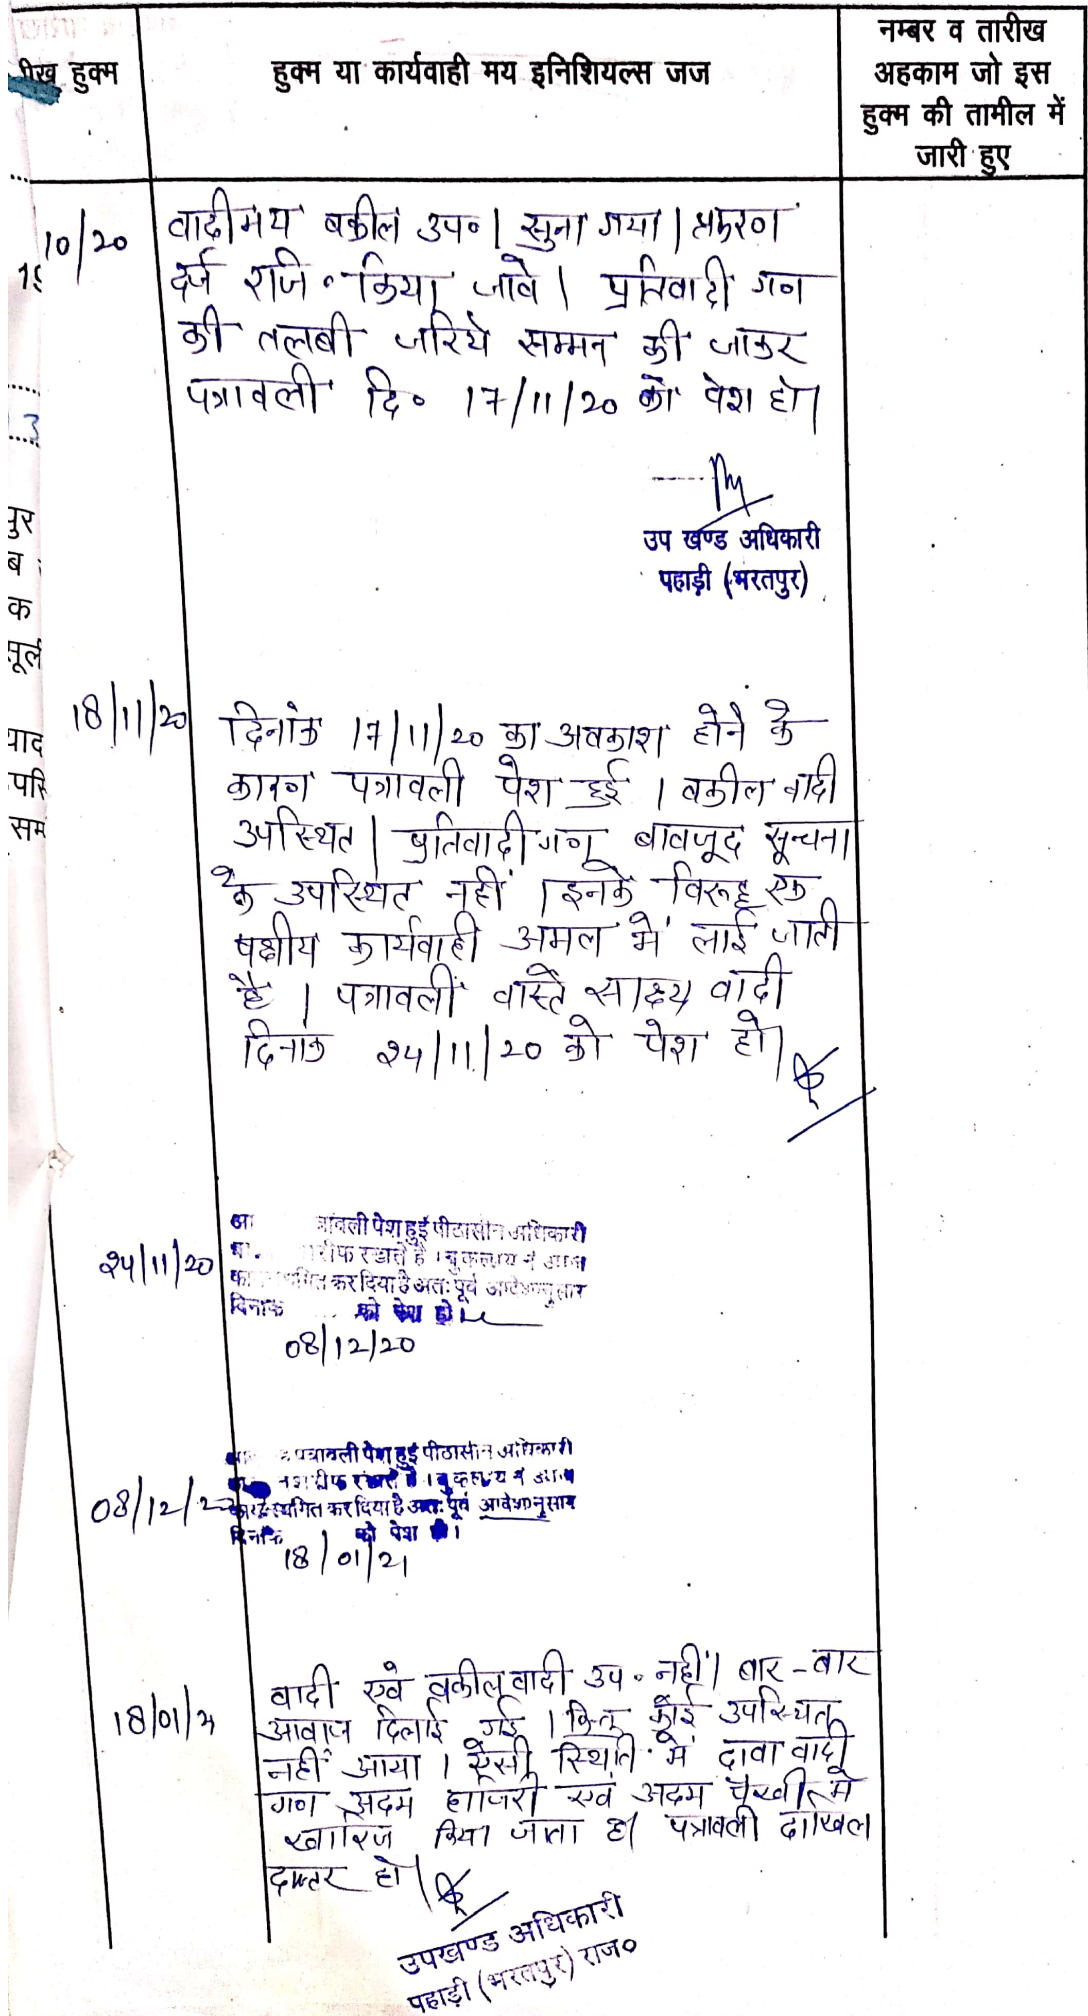 नम्बर व तारीख
रीख हुक्म
हुक्म या कार्यवाही मय इनिशियल्स जज
अहकाम जो इस
हुक्म की तामील में
जारी हुए
10/20
वादी मय बकील उप० | सुना गया | प्रकरण
दर्ज राजि० किया जावे | प्रतिवादी गण
की तलबी जरिये सम्मन की जाकर
पत्रावली दि० 17/11/20 को पेश हो |
उप खण्ड अधिकारी
पहाड़ी (भरतपुर)
3
पुर
ब
क
मूली
याद
परि
सम
18/11/20
दिनांक 17/11/20 का अवकाश होने के
कारण पत्रावली पेश हुई | बकील वादी
उपस्थित | प्रतिवादी गण बावजूद सूचना
के उपस्थित नहीं | इनके विरूद्ध एक
पक्षीय कार्यवाही अमल में लाई जाती
है | पत्रावली वास्ते साक्ष्य वादी
दिनांक 24/11/20 को पेश हो |
24/11/20
त्रावली पेश हुई पीठासीन अधिकारी
रीफ रखते है
स्थगित कर दिया है अतः पूर्व आदेशानुसार
दिनांक को पेश हो
08/12/20
08/12/20
पत्रावली पेश हुई पीठासीन अधिकारी
स्थगित कर दिया है अतः पूर्व आदेशानुसार
दिनांक को पेश हो।
18/01/21
18/01/21
वादी एवं वकील वादी उप० नहीं | बार-बार
आवाज दिलाई गई | किन्तु कोई उपस्थित
नहीं आया | ऐसी स्थिति में दावा वादी
गण अदम हाजिरी एवं अदम पैरवी में
खारिज किया जाता है | पत्रावली दाखिल
दफ्तर हो |
उपखण्ड अधिकारी
पहाड़ी (भरतपुर) राज०